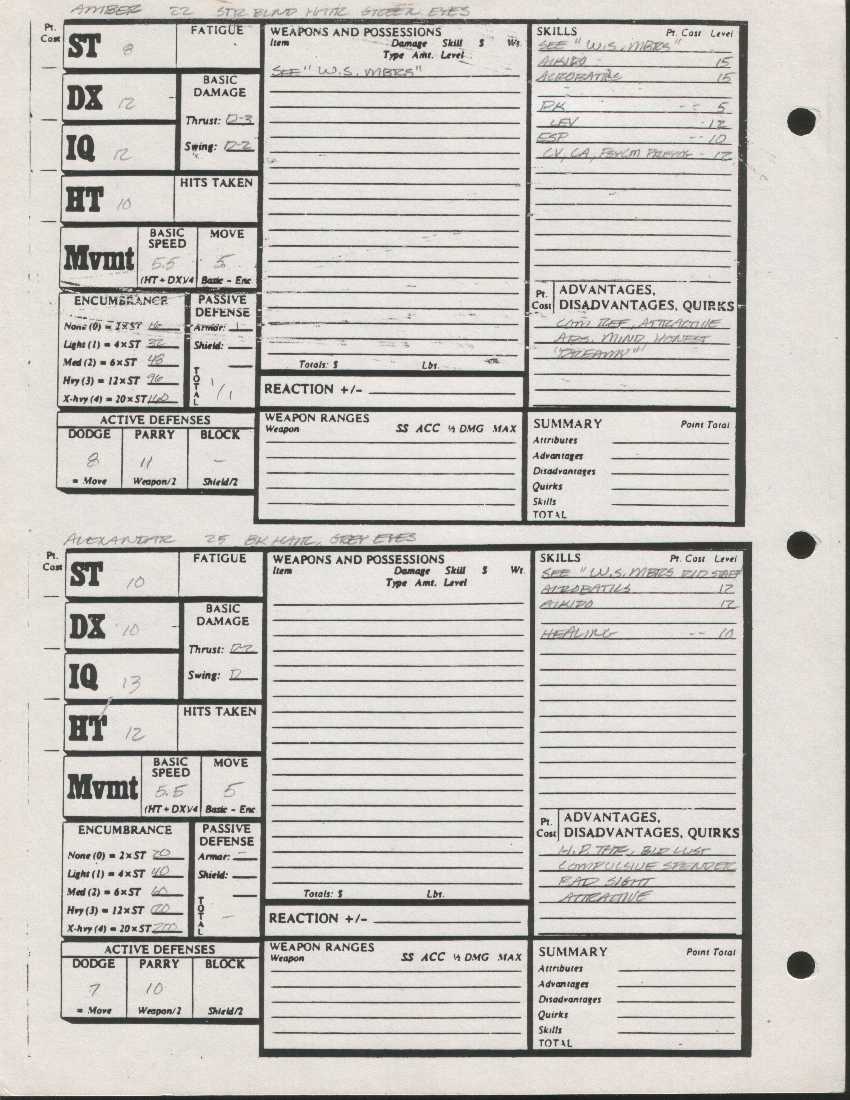 AMBER 22 STR BLND HAIR GREEN EYES
Pt. Cost
ST 8
FATIGUE
DX 12
BASIC DAMAGE
Thrust: D-3
Swing: D-2
IQ 12
HT 10
HITS TAKEN
Mvmt
BASIC SPEED
5.5
(HT + DX)/4
MOVE
5
Basic - Enc
ENCUMBRANCE
None (0) = 2×ST 16
Light (1) = 4×ST 32
Med (2) = 6×ST 48
Hvy (3) = 12×ST 96
X-hvy (4) = 20×ST 160
PASSIVE DEFENSE
Armor: 1
Shield:
TOTAL 1/1
ACTIVE DEFENSES
DODGE PARRY BLOCK
8 11 -
= Move Weapon/2 Shield/2
WEAPONS AND POSSESSIONS
Item Damage Skill $ Wt.
Type Amt. Level
SEE "W.S. MBRS"
Totals: $ Lbs.
REACTION +/-
WEAPON RANGES
Weapon SS ACC ½ DMG MAX
SKILLS Pt. Cost Level
SEE "W.S. MBRS"
AIKIDO 15
ACROBATICS 15
PK -- 5
LEV - 12
ESP -- 10
CV, CA, PSYCM - 12
Pt. Cost
ADVANTAGES, DISADVANTAGES, QUIRKS
COM REF, ATTRACTIVE
ABS. MIND, HONEST
"DREAMY"
SUMMARY Point Total
Attributes
Advantages
Disadvantages
Quirks
Skills
TOTAL
25 BK HAIR, GREY EYES
Pt. Cost
ST 10
FATIGUE
DX 10
BASIC DAMAGE
Thrust: D-2
Swing: D
IQ 13
HT 12
HITS TAKEN
Mvmt
BASIC SPEED
5.5
(HT + DX)/4
MOVE
5
Basic - Enc
ENCUMBRANCE
None (0) = 2×ST 20
Light (1) = 4×ST 40
Med (2) = 6×ST 60
Hvy (3) = 12×ST 120
X-hvy (4) = 20×ST 200
PASSIVE DEFENSE
Armor: -
Shield:
TOTAL -
ACTIVE DEFENSES
DODGE PARRY BLOCK
7 10
= Move Weapon/2 Shield/2
WEAPONS AND POSSESSIONS
Item Damage Skill $ Wt.
Type Amt. Level
Totals: $ Lbs.
REACTION +/-
WEAPON RANGES
Weapon SS ACC ½ DMG MAX
SKILLS Pt. Cost Level
SEE "W.S. MBRS
ACROBATICS 12
AIKIDO 12
HEALING -- 10
Pt. Cost
ADVANTAGES, DISADVANTAGES, QUIRKS
BLD LUST
COMPULSIVE SPENDER
BAD SIGHT
ATTRACTIVE
SUMMARY Point Total
Attributes
Advantages
Disadvantages
Quirks
Skills
TOTAL